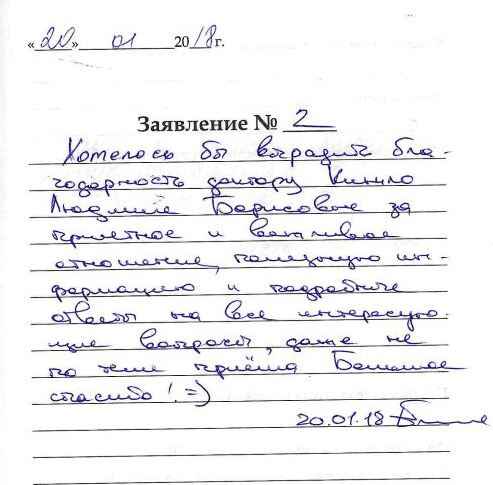 «20» 01 2018г.
Заявление № 2
Хотелось бы выразить бла-
годарность доктору Кинило
Людмиле Борисовне за
приятное и вежливое
отношение, полезную ин-
формацию и подробные
ответы на все интересую-
щие вопросы, даже не
по теме приёма Большое
спасибо! =)
20.01.18